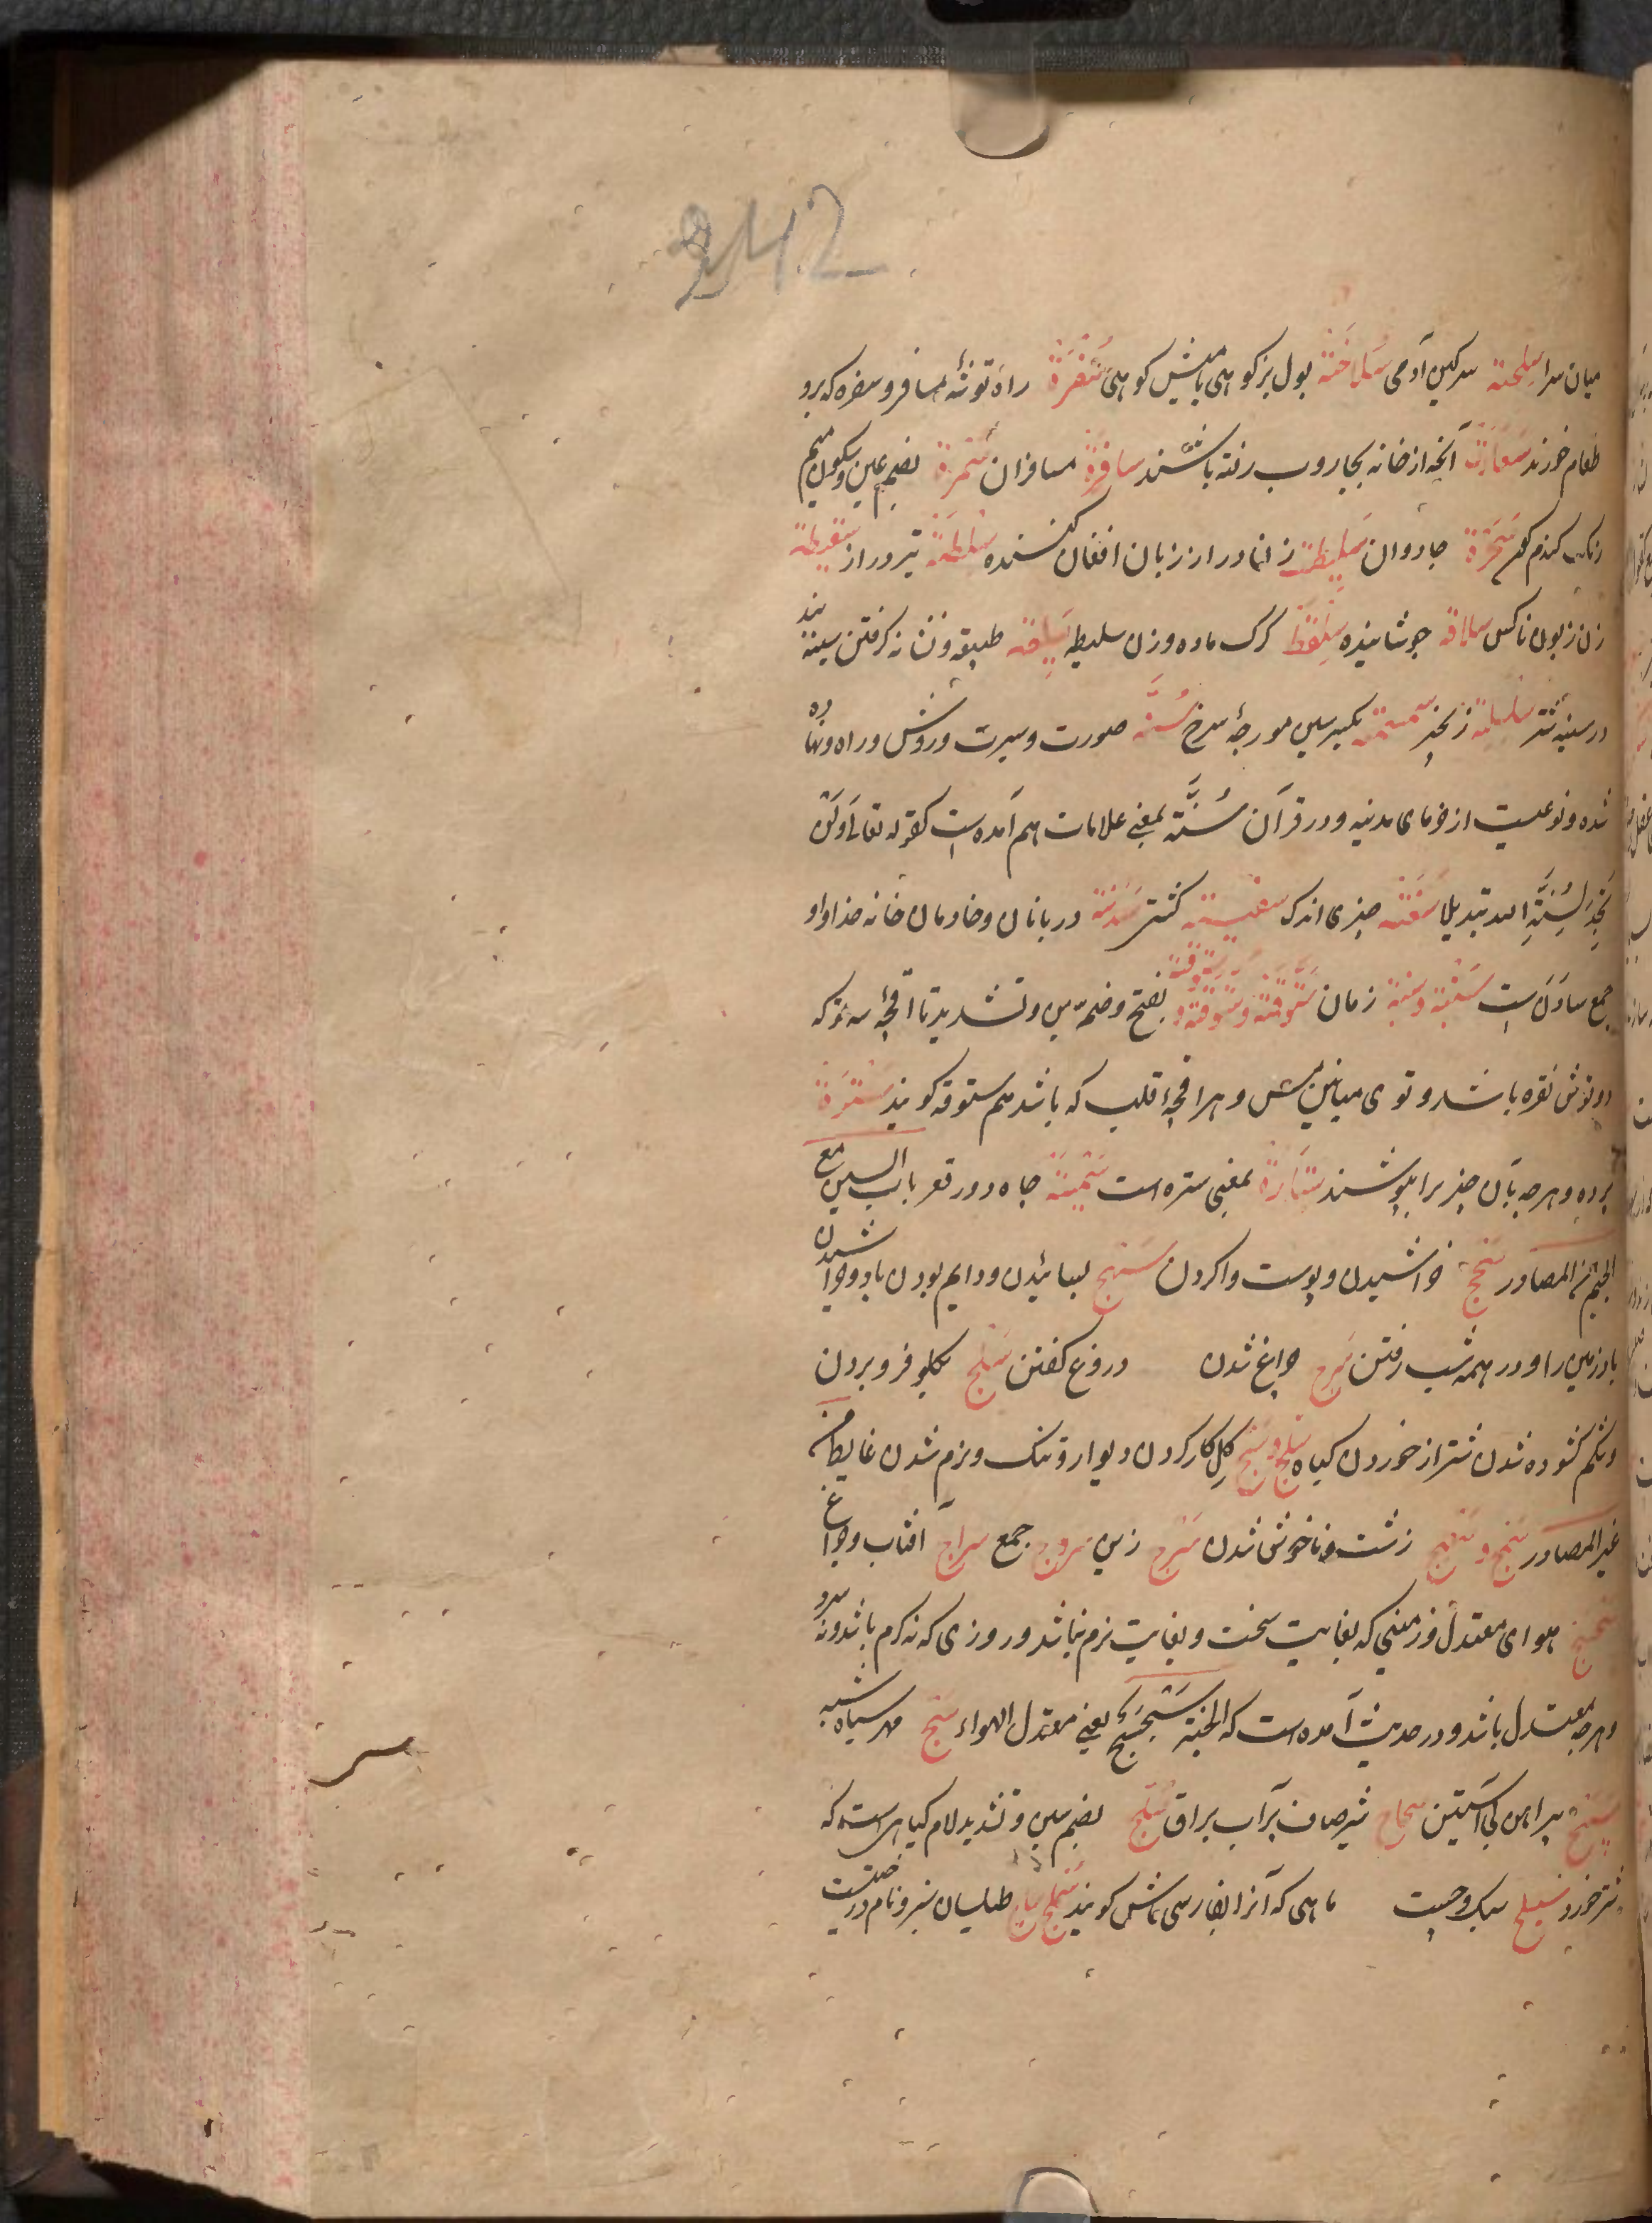 242
میان سرا سلحة سرکین آدمی سلاخة بول بز کوهی یا میش کوهی سفرة راه توشهٔ مسافر و سفره که برو
طعام خورند سفارة آنچه از خانه بجاروب رفته باشند سافرة مسافران سمرة بضم عین و سکون میم
رنک کندم کون سحرة جادوان سلیطة زنا دراز زبان افغان کننده سلطة تیر دراز سقیطة
زن زبون ناکس سلاقة جوشانیده سلقة کرک ماده و زن سلیطه سلیقة طبیعة و نشانه کرفتن سینه بند
در سینه شتر سلسلة زنجیر سمسمة بکسر سین مورچهٔ سرخ سنّة صورت و سیرت و روش و راه و نهاده
شده و نوعیست از خرمای مدینه و در قرآن سُنّة بمعنی علامات هم آمده است کقوله تعالی وَلَن
تَجِدَ لِسُنَّةِ الله تبدیلا سغنة چیزی اندک سفینة کشتی سدنة دربانان و خادمان خانه خدا و او
جمع سادن است سنبة و سبة زمان ستوقة و ستوقة و ستوقة بفتح و ضمّ سین و تشدید تا اقچهٔ سه تو که
دو توش نقره باشد و توی میانین مس و هر اقچهٔ قلب که باشد هم ستوقه کویند سترة
پرده و هرچه بآن چیزیرا بپوشند ستارة بمعنی ستره است سمینة چاه دور قعر باب السین مع
الجیم من المصادر سحج خراشیدن و پوست وا کردن سهج بسائیدن و دایم بودن باد و خراشیدن
باد زمین را و در همه شب رفتن سرج چراغ شدن دروغ کفتن سلج بکلو فرو بردن
و شکم کشوده شدن شتر از خوردن کیاه سلج و سیج کل کار کردن دیوار و تنک و نرم شدن غایط من
غیر المصادر سمج و سمیج زشت و ناخوش شدن سرج زین سروج جمع سراج آفتاب و چراغ
سجسج هوای معتدل و زمینی که بغایت سخت و بغایت نرم نباشد و روزی که نه کرم باشد و نه سرد
و هرچه معتدل باشد و در حدیث آمده است که الجنة سجسج یعنی معتدل الهواء سبج مهره سیاه شبه
سبیج پیراهن بی آستین سجاج شیر صاف پر آب براق سلّج بضم سین و تشدید لام کیاهی است که
شتر خورد سیلج سبک و چست ماهی که آنرا بفارسی ماش کویند سملج ساج طیلسان سبز و نام درختیست